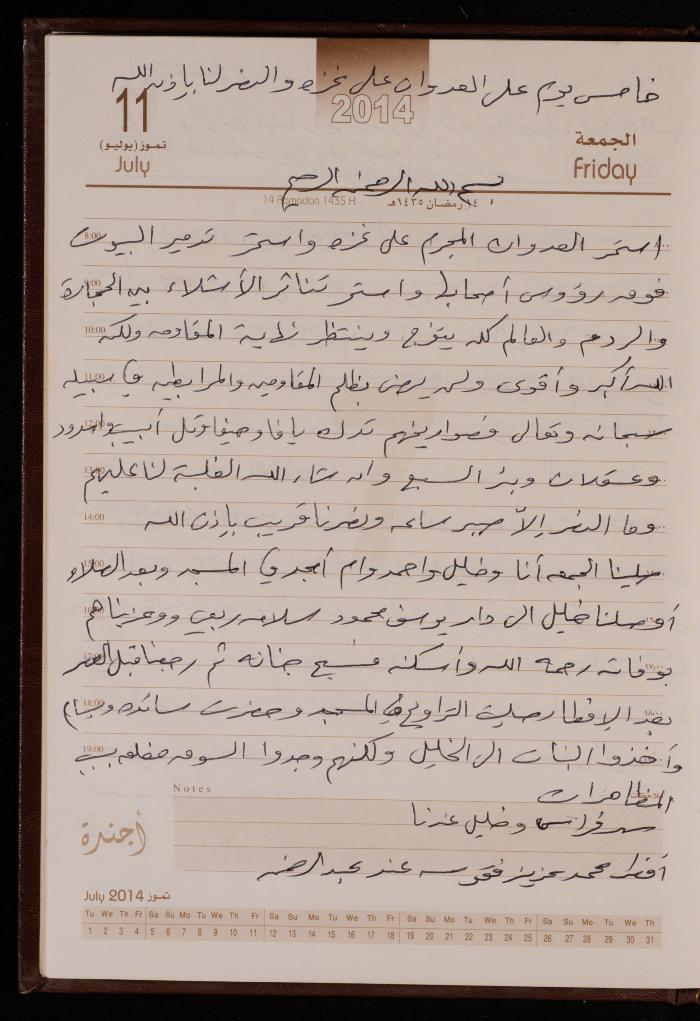 خامس يوم على العدوان على غزه والنصر لنا بإذن الله
11
2014
تموز (يوليو)
July
الجمعة
Friday
بسم الله الرحمن الرحيم
14 Ramadan 1435 H
١٤ رمضان ١٤٣٥هـ
8:00 استمر العدوان المجرم على غزه واستمر تدمير البيوت
9:00 فوق رؤوس أصحابها واستمر تناثر الأشلاء بين الحجارة
10:00 والردم والعالم كله يتفرج وينتظر نهاية المقاومه ولكن
11:00 الله أكبر وأقوى ولن يرضى بظلم المقاومين والمرابطين في سبيله
12:00 سبحانه وتعالى فصواريخهم تدك يافا وحيفا وتل أبيب واسدود
13:00 وعسقلان وبئر السبع وان شاء الله الغلبة لنا عليهم
14:00 وما النصر إلاّ صبر ساعه ونصرنا قريب بإذن الله
15:00 صلينا الجمعه أنا وخليل واحمد وام أمجد في المسجد وبعد الصلاه
أوصلنا خليل الى دار يوسف محمود سلامه ربعي وعزيناهم
بوفاته رحمه الله وأسكنه فسيح جنانه ثم رجعنا قبل العصر
18:00 بعد الإفطار صليت التراويح في المسجد وحضرت سائده
19:00 وأخذوا البنات الى الخليل ولكنهم وجدوا السوق مغلق بسبب
المظاهرات
Notes
وخليل عندنا
أفطر محمد عزيز عند عبد الرحمن
أجندة
July 2014 تموز
Tu We Th Fr Sa Su Mo Tu We Th Fr Sa Su Mo Tu We Th Fr Sa Su Mo Tu We Th Fr Sa Su Mo Tu We Th
1 2 3 4 5 6 7 8 9 10 11 12 13 14 15 16 17 18 19 20 21 22 23 24 25 26 27 28 29 30 31